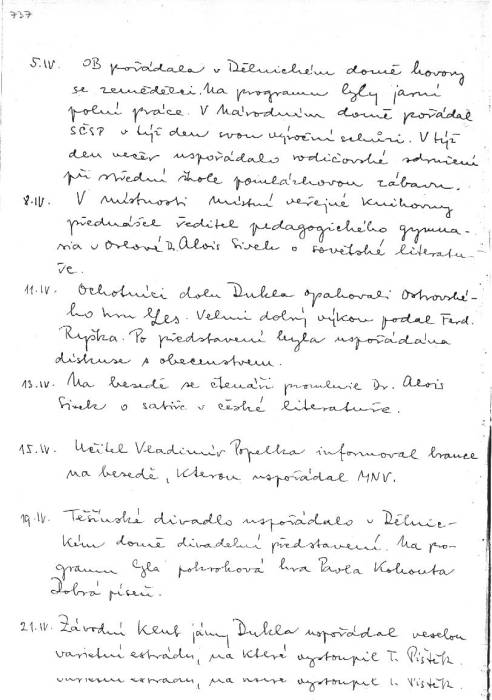 737
5.IV. OB pořádala v Dělnickém domě hovory
se zemědělci. Na programu byly jarní
polní práce. V Národním domě pořádal
SČSP v týž den svou výroční schůzi. V týž
den večer uspořádalo rodičovské sdružení
při střední škole pomlázkovou zábavu.
8.IV. V místnosti místní veřejné knihovny
přednášel ředitel pedagogického gymna-
sia v Orlové Dr. Alois Sivek o sovětské literatu-
ře.
11.IV. Ochotníci dolu Dukla opakovali Ostrovské-
ho hru Les. Velmi dobrý výkon podal Ferd.
Ryška. Po představení byla uspořádána
diskuse s obecenstvem.
13.IV. Na besedě se čtenáři promluvil Dr. Alois
Sivek o satiře v české literatuře.
15.IV. Učitel Vladimír Popelka informoval brance
na besedě, kterou uspořádal MNV.
19.IV. Těšínské divadlo uspořádalo v Dělnic-
kém domě divadelní představení. Na pro-
gramu byla pokroková hra Pavla Kohouta
Dobrá píseň.
21.IV. Závodní klub jámy Dukla uspořádal veselou
varietní estrádu, na které vystoupil T. Pistěk.
varietní estrádu, na které vystoupil